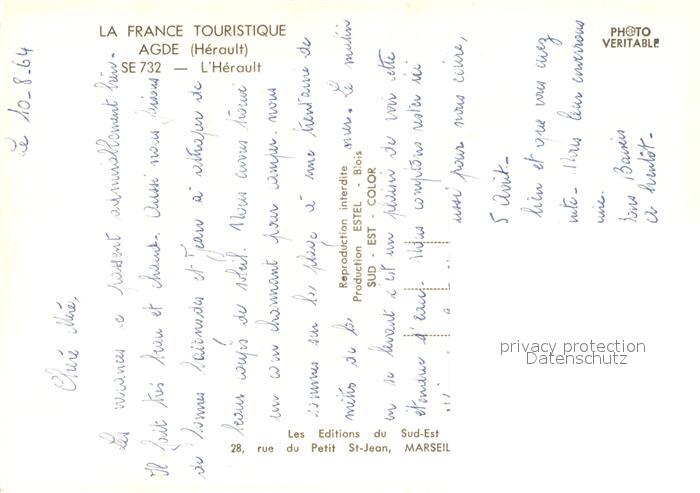 LA FRANCE TOURISTIQUE
AGDE (Hérault)
SE 732 — L'Hérault
PHOTO
VERITABLE
Le 10-8-64
Chère Mère,
Les vacances se passent admirablement bien.
Il fait très beau et chaud. Aussi nous faisons
de bonnes baignades et Jean a attrapé de
beaux coups de soleil. Nous avons trouvé
un coin charmant pour camper. nous
sommes sur la place à une trentaine de
mètres de la mer. Le matin
en se levant c'est un plaisir de voir cette
étendue d'eau. Nous comptons rester ici
aussi pour nous écrire,
5 Août-
bien et que vous avez
Nous leur enverrons
une
Bons Baisers
à bientôt-
Reproduction interdite
Production ESTEL - Blois
SUD - EST - COLOR
Les Editions du Sud-Est
28, rue du Petit St-Jean, MARSEIL
privacy protection
Datenschutz